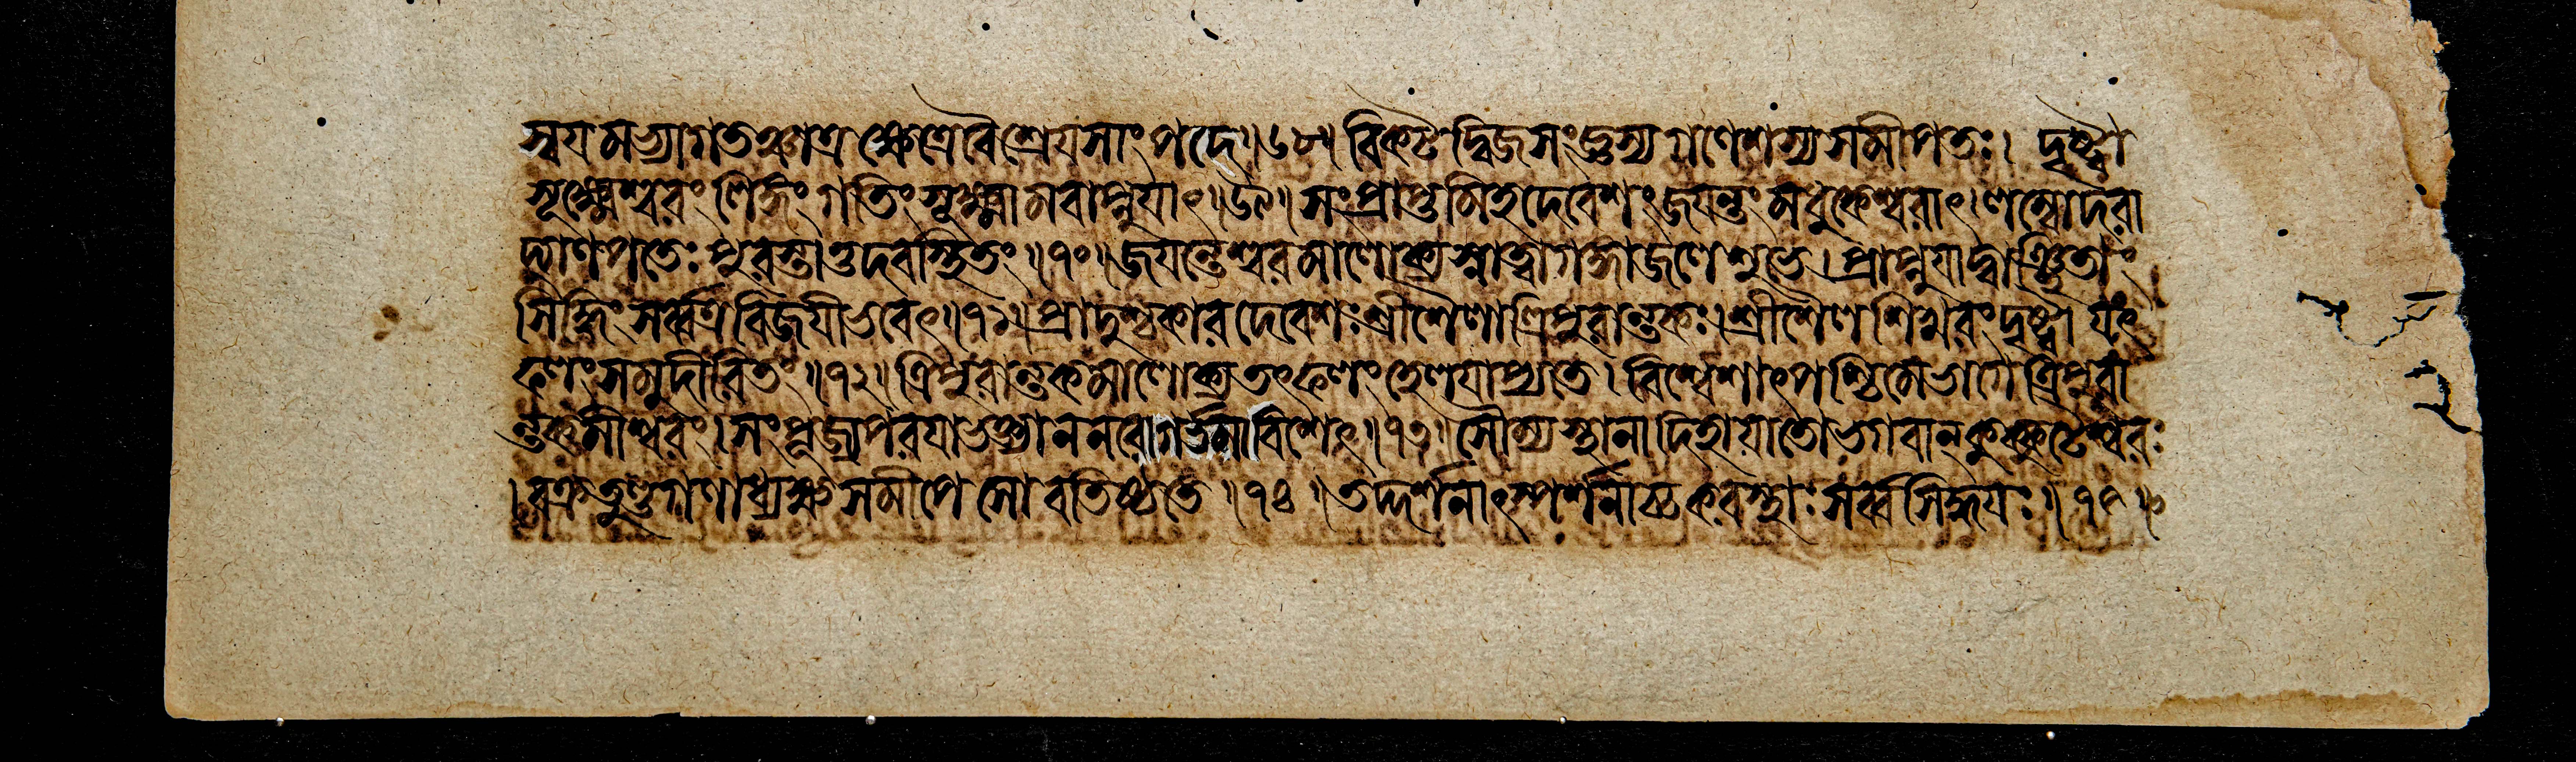 স্বয়মভ্যাগতশ্চাত্র ক্ষেত্রে বৈ শ্রেয়সাং পদে ॥ ৬৮ ॥ বিকটদ্বিজসংজ্ঞস্য গণেশস্য সমীপতঃ । দৃষ্ট্বা
সূক্ষ্মেশ্বরং লিঙ্গং গতিং সূক্ষ্মামবাপ্নুয়াৎ ॥ ৬৯ ॥ সংপ্রাপ্তমিহ দেবেশং জয়ন্তং মধুকেশ্বরাৎ । লম্বোদরা
দ্গণপতেঃ পুরস্তাত্তদবস্থিতং ॥ ৭০ ॥ জয়ন্তেশ্বরমালোক্য স্নাত্বা গঙ্গাজলে শুভে । প্রাপ্নুয়াদ্বাঞ্ছিতাং
সিদ্ধিং সর্ব্বত্র বিজয়ী ভবেৎ ॥ ৭১ ॥ প্রাদুশ্চকার দেবেশঃ শ্রীশৈলাত্ত্রিপুরান্তকঃ । শ্রীশৈলশিখরং দৃষ্ট্বা যৎ
ফলং সমুদীরিতং ॥ ৭২ ॥ ত্রিপুরান্তকমালোক্য তৎফলং হেলয়াপ্যতে । বিশ্বেশাৎ পশ্চিমে ভাগে ত্রিপুরা
ন্তকমীশ্বরং । সংপূজ্য পরয়া ভক্ত্যা ন নরো গর্ভমাবিশেৎ ॥ ৭৩ ॥ সৌম্যস্থানাদিহায়াতো ভগবান্ কুক্কুটেশ্বরঃ
। বক্রতুণ্ডগণাধ্যক্ষসমীপে সোবতিষ্ঠতে ॥ ৭৪ ॥ তদ্দর্শনাৎস্পর্শনাচ্চ করস্থাঃ সর্ব্বসিদ্ধয়ঃ ॥ ৭৫ ॥